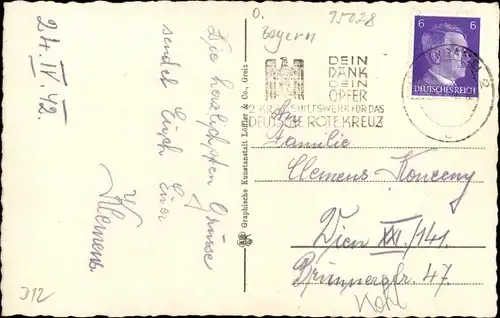 24. IV. 42.
Die herzlichsten Grüsse
sendet Euch Euer
Klemens.
J12
Graphische Kunstanstalt Löffler & Co., Greiz
O.
95028
Bayern
DEIN
DANK
DEIN
OPFER
HILFSWERK FÜR DAS
DEUTSCHE ROTE KREUZ
6 6
DEUTSCHES REICH
An
Familie
Clemens Konecny
Wien XXI/141.
Brünnerstr. 47.